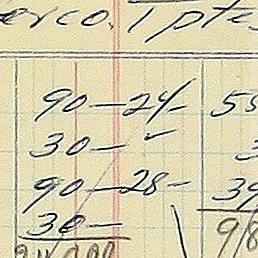 erco. 1 pte
90—24— 55
30— ✓ 3
90—28— 39
30—
9/8